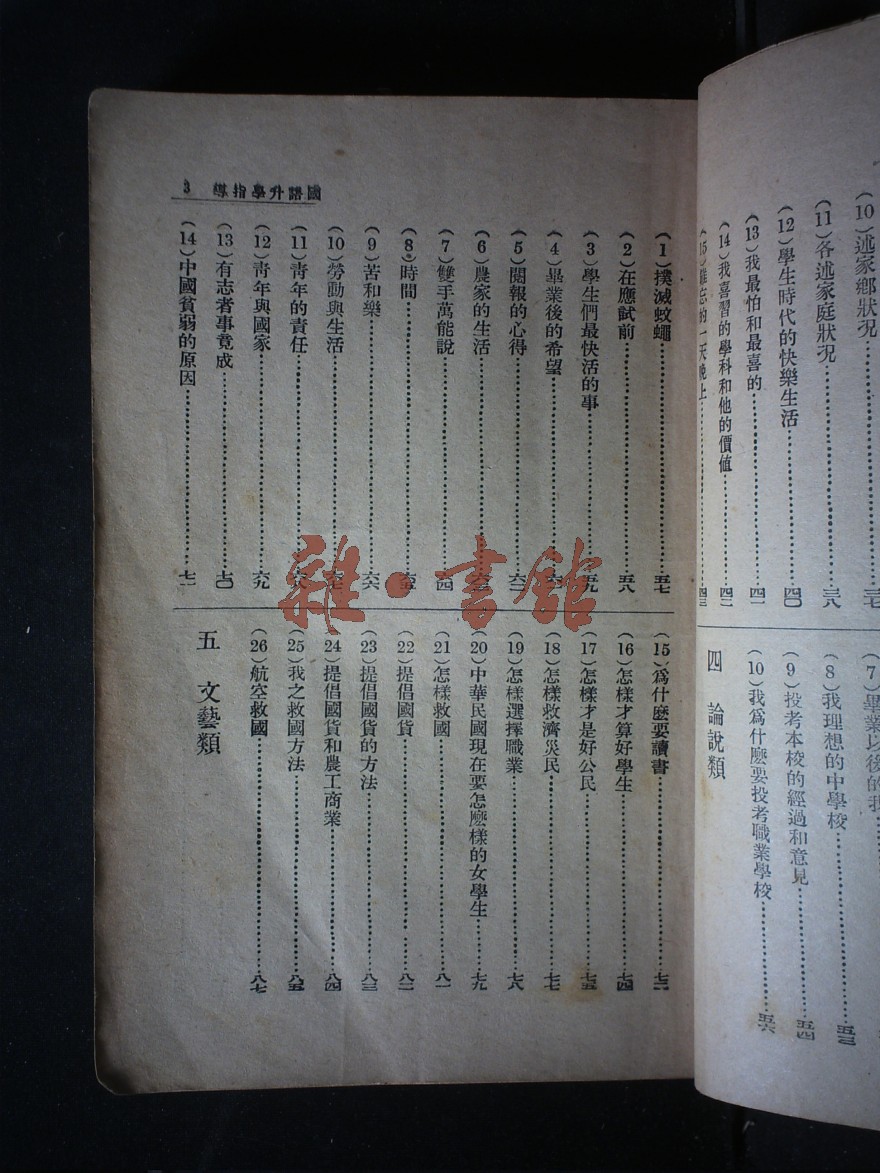 (10)述家鄉狀況……三七
(11)各述家庭狀況……三八
(12)學生時代的快樂生活……四〇
(13)我最怕和最喜的……四一
(14)我喜習的學科和他的價值……四二
(15)難忘的一天晚上……四三
(7)畢業以後的我
(8)我理想的中學校……五三
(9)投考本校的經過和意見……五四
(10)我爲什麽要投考職業學校……五六
四 論說類
國語升學指導 3
(1)撲滅蚊蠅……五七
(2)在應試前……五八
(3)學生們最快活的事……五九
(4)畢業後的希望……
(5)閱報的心得……
(6)農家的生活……
(7)雙手萬能說……六四
(8)時間……六五
(9)苦和樂……六六
(10)勞動與生活……六七
(11)靑年的責任……六八
(12)靑年與國家……六九
(13)有志者事竟成……七〇
(14)中國貧弱的原因……七一
(15)爲什麽要讀書……
(16)怎樣才算好學生……七四
(17)怎樣才是好公民……七五
(18)怎樣救濟災民……七七
(19)怎樣選擇職業……七八
(20)中華民國現在要怎麽樣的女學生……七九
(21)怎樣救國……八一
(22)提倡國貨……八二
(23)提倡國貨的方法……八三
(24)提倡國貨和農工商業……八四
(25)我之救國方法……八五
(26)航空救國……八七
五 文藝類
雜·書館